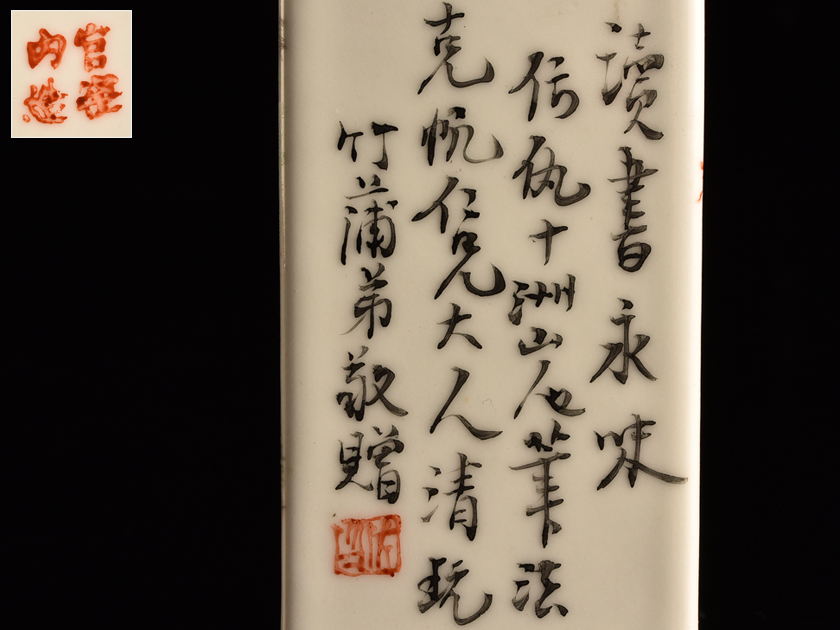 官窯
內造
讀書永味
仿仇十洲山人筆法
克帆仁兄大人清玩
竹蒲弟敬贈